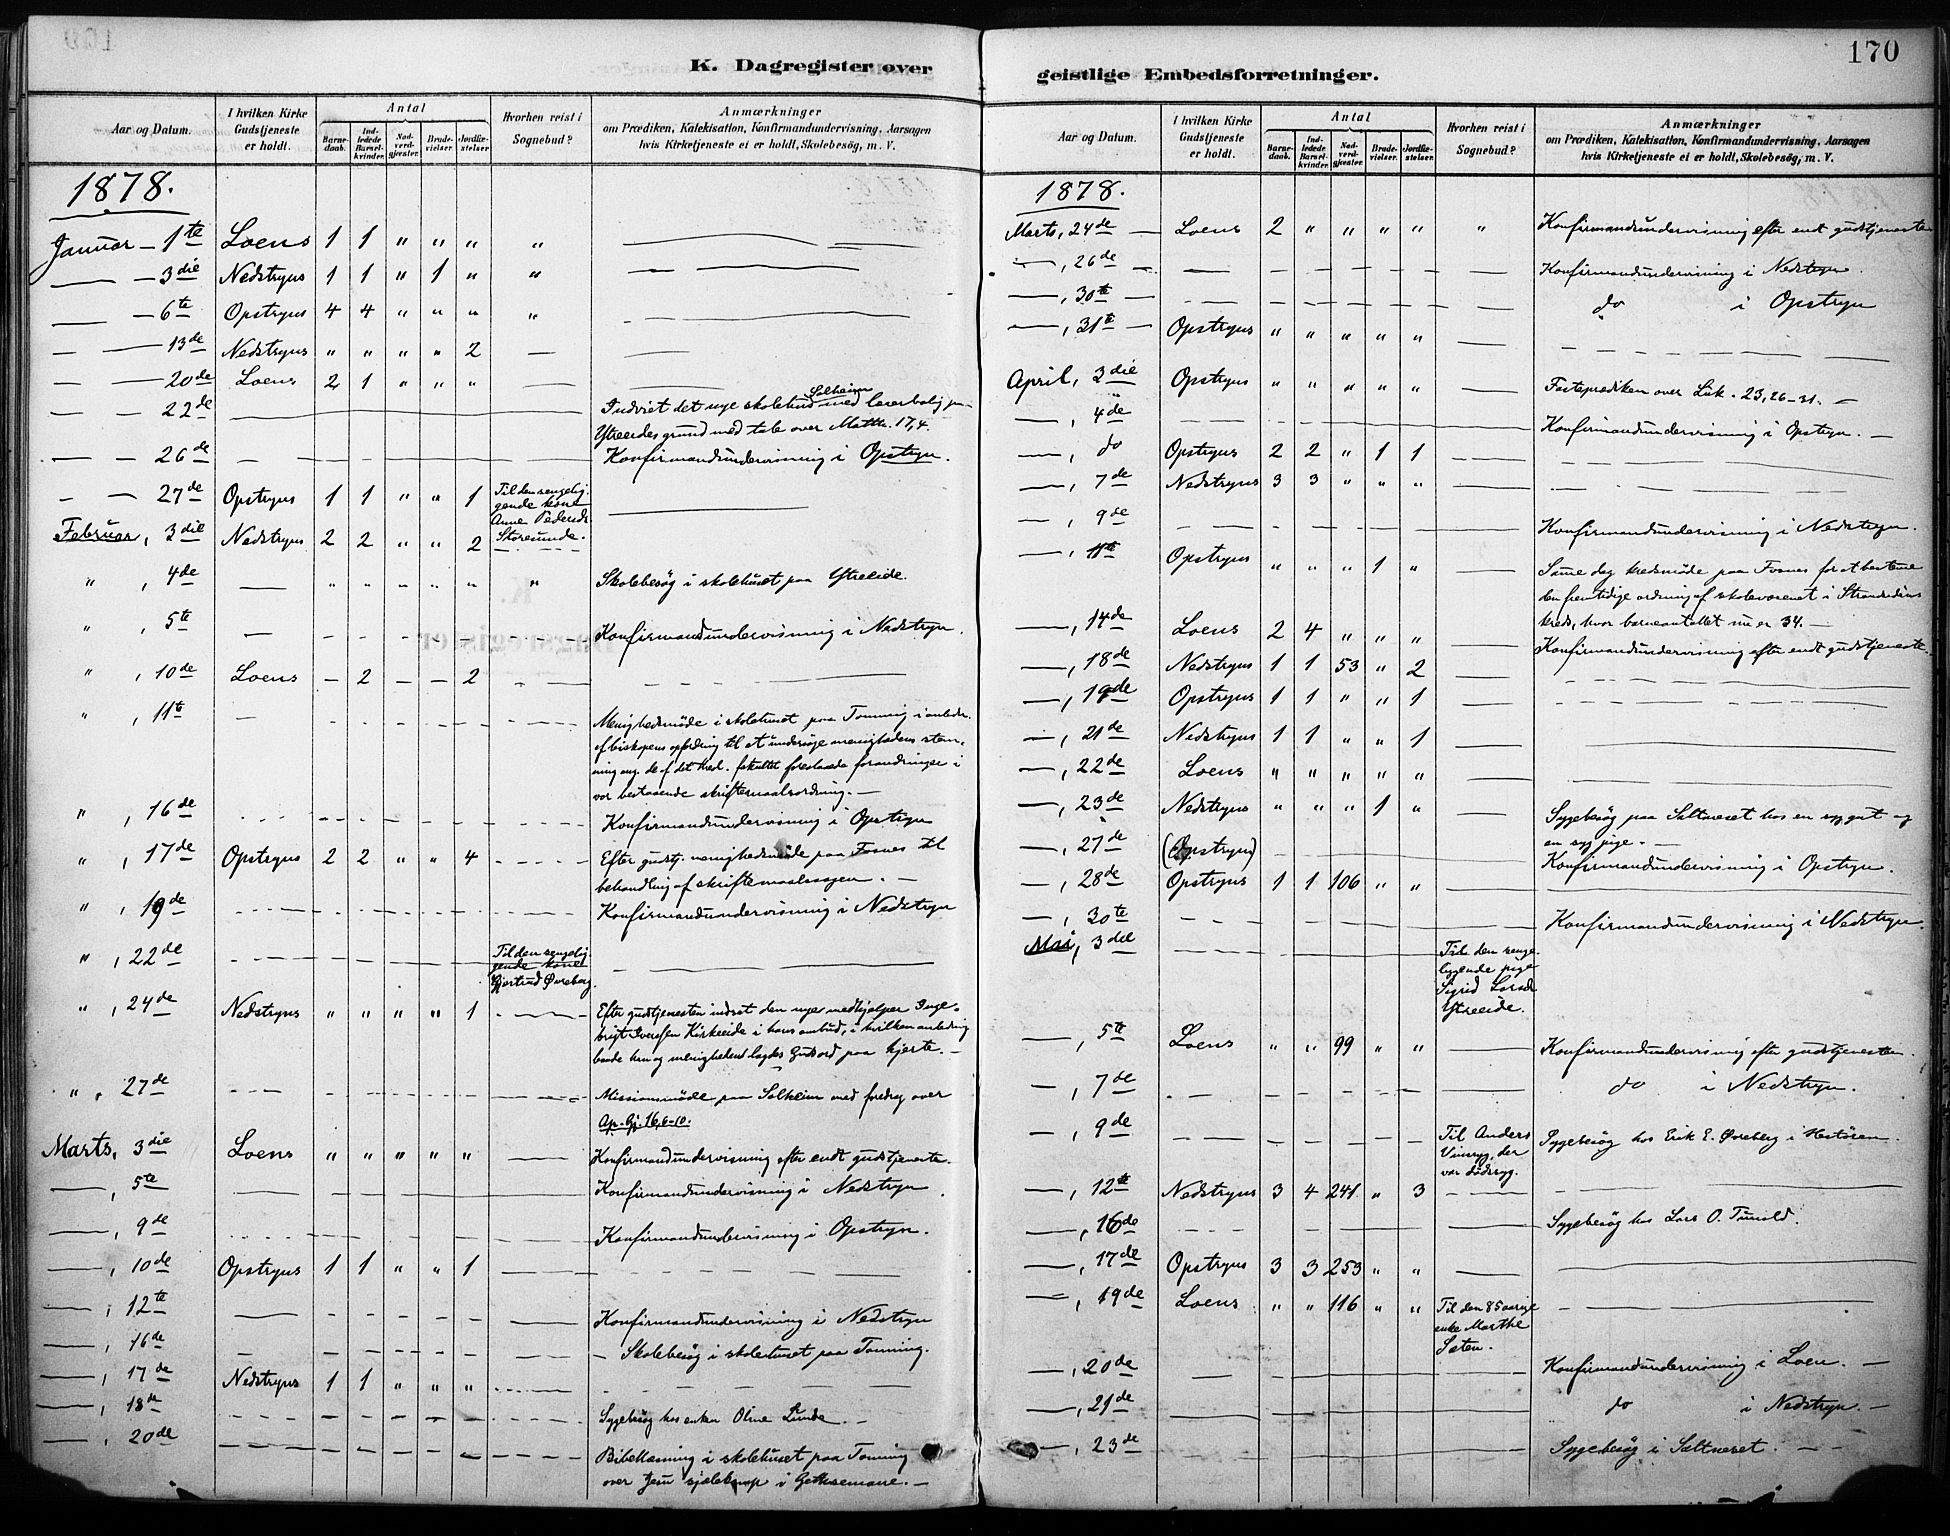 K. Dagregister over
Aar og Datum. I hvilken Kirke Gudstjeneste er holdt. Antal Barnedaab. Indledede Barselkvinder. Nadverdgjester. Brudevielser. Jordfæstelser. Hvorhen reist i Sognebud? Anmærkninger om Prædiken, Katekisation, Konfirmandundervisning, Aarsagen hvis Kirketjeneste ei er holdt, Skolebesøg, m. V.
1878.
Januar — 1te Loens 1 1 " " " "
— 3die Nedstryns 1 1 " 1 " "
— 6te Opstryns 4 4 " " " "
— 13de Nedstryns " " " " 2 —
— 20de Loens 2 1 " " " —
— 22de — Indviet det nye skolehus Solheim med lærerbolig paa
Ytreeides grund med tale over Matth. 17,4.
— 26de — Konfirmandundervisning i Opstryn.
— 27de Opstryns 1 1 " " 1 Til den sengelig-
gende kone
Anne Pedersd.
Storesunde.
Februar, 3die Nedstryns 2 2 " " 2
" , 4de — " " " " " " Skolebesøg i skolehuset paa Ytreeide.
" , 5te — Konfirmandundervisning i Nedstryn.
" , 10de Loens — 2 — — 2
" , 11te — Menighedsmøde i skolehuset paa Tonning i anledn.
af biskopens opfordring til at undersøge menighedens stem-
ning ang. de af det theol. fakultet foreslaaede forandringer i
vor bestaaende skriftemaalsordning. —
" , 16de Konfirmandundervisning i Opstryn
" , 17de Opstryns 2 2 " " 4 Efter gudstj. menighedsmøde paa Fosnes til
behandling af skriftemaalssagen. —
" , 19de Konfirmandundervisning i Nedstryn
" , 22de Til den sengelig-
gende kone
Gjertrud Øvreberg.
" , 24de Nedstryns " " " " 1 Efter gudstjenesten indsat den nye medhjælper Inge-
brigt Iversen Kirkeeide i hans ombud, i hvilken anledning
baade han og menigheden lagdes Guds ord paa hjerte. —
" , 27de Missionsmøde paa Solheim med foredrag over
Ap. Gj. 16, 6-10.
Marts, 3die Loens " " " " " — Konfirmandundervisning efter endt gudstjeneste.
—, 5te — Konfirmandundervisning i Nedstryn
—, 9de Konfirmandundervisning i Opstryn.
—, 10de Opstryns 1 1 " " 1
—, 12te — Konfirmandundervisning i Nedstryn
—, 16de — Skolebesøg i skolehuset paa Tonning.
—, 17de Nedstryns 1 1 " " "
—, 18de Sygebesøg hos enken Oline Lunde. —
—, 20de Bibellæsning i skolehuset paa Tonning
over Jesu sjælekamp i Gethsemane. —
geistlige Embedsforretninger.
170
Aar og Datum. I hvilken Kirke Gudstjeneste er holdt. Antal Barnedaab. Indledede Barselkvinder. Nadverdgjester. Brudevielser. Jordfæstelser. Hvorhen reist i Sognebud? Anmærkninger om Prædiken, Katekisation, Konfirmandundervisning, Aarsagen hvis Kirketjeneste ei er holdt, Skolebesøg, m. V.
1878.
Marts, 24de — Loens 2 " " " " " Konfirmandundervisning efter endt gudstjeneste
—, 26de — Konfirmandundervisning i Nedstryn.
—, 30te — do i Opstryn
—, 31te — Opstryns " " " " " —
April, 3die Opstryns " " " " " — Fasteprædiken over Luk. 23, 26-31. —
—, 4de — Konfirmandundervisning i Opstryn. —
—, do Opstryns 2 2 " 1 1
—, 7de Nedstryns 3 3 " " " —
—, 9de Konfirmandundervisning i Nedstryn.
—, 11te Opstryns " " " 1 " Same dag kredsmøde paa Fosnes for at besteme
den fremtidige ordning af skolevæsenet i Strandsidens
kreds, hvor barneantallet nu er 34. —
—, 14de Loens 2 4 " " " Konfirmandundervisning efter endt gudstjeneste.
—, 18de Nedstryns 1 1 53 " 2
—, 19de Opstryns 1 1 " " 1
—, 21de Nedstryns 1 1 " " 1
—, 22de Loens " " " " "
—, 23de Nedstryns " " " 1 " Sygebesøg paa Sætneset hos en syg gut og
en syg pige. —
—, 27de (Opstryn) Konfirmandundervisning i Opstryn.
—, 28de Opstryns 1 1 106 " "
—, 30te Konfirmandundervisning i Nedstryn.
Mai, 3die Til den senge-
liggende pige
Sigrid Larsd.
Ytreeide.
—, 5te Loens " " 99 " " — Konfirmandundervisning efter gudstjenesten.
—, 7de do i Nedstryn.
—, 9de Til Anders
Vinsryg, der
var dødssyg. Sygebesøg hos Erik E. Øvreberg i Hestøren.
—, 12te Nedstryns 3 4 241 " 3
—, 16de Sygebesøg hos Lars O. Tunold.
—, 17de Opstryns 3 3 253 " "
—, 19de Loens " " 116 " " Til den 85 aarige
enke Marthe
Sæten.
—, 20de Konfirmandundervisning i Loen. —
—, 21de do i Nedstryn. —
—, 23de Sygebesøg i Sætneset. —